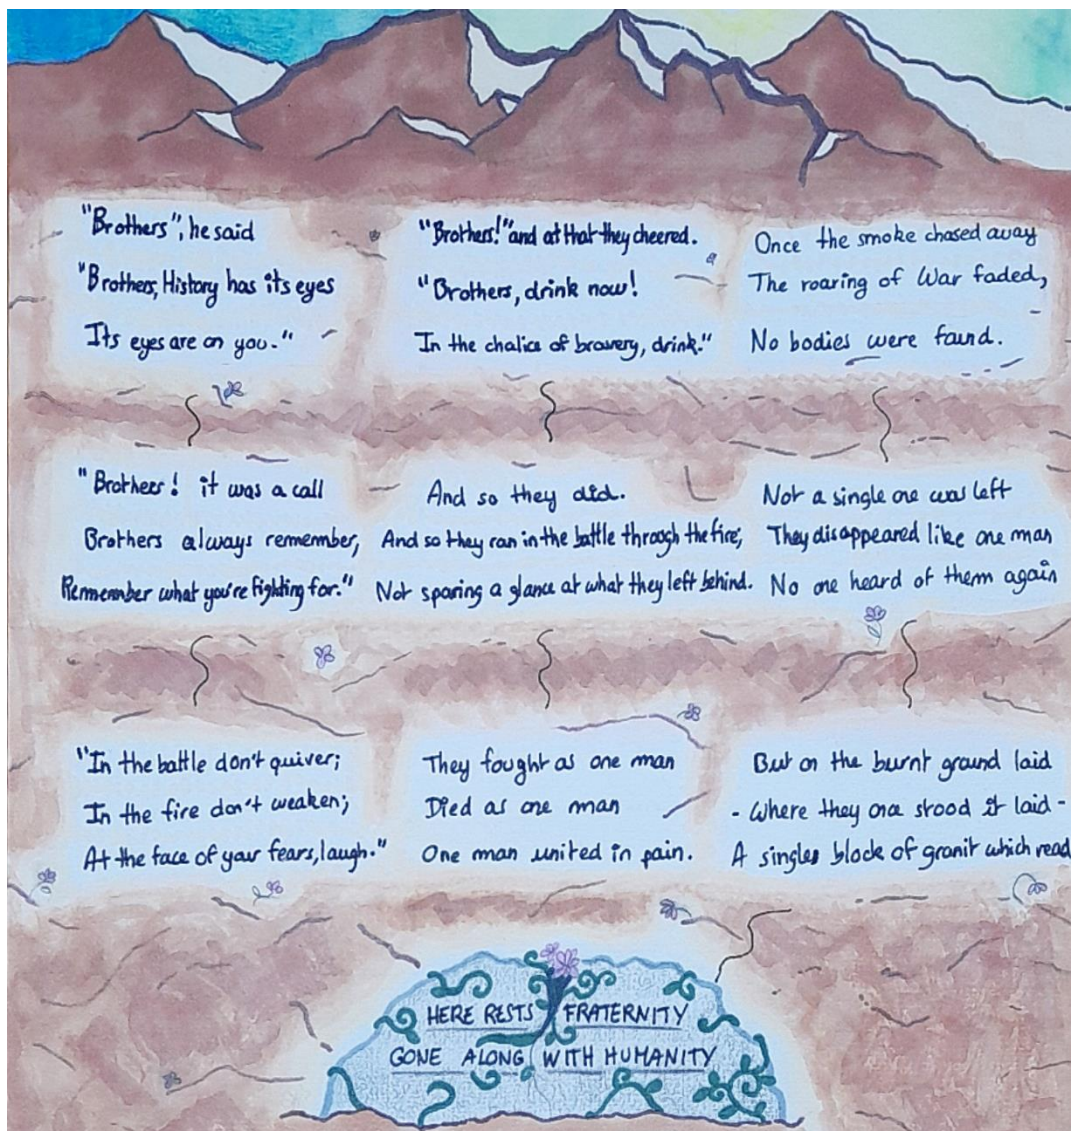 "Brothers", he said
"Brothers, History has its eyes
Its eyes are on you."
"Brothers! it was a call
Brothers always remember,
Remember what you're fighting for."
"In the battle don't quiver;
In the fire don't weaken;
At the face of your fears, laugh."
"Brothers!" and at that they cheered.
"Brothers, drink now!
In the chalice of bravery, drink."
And so they did.
And so they ran in the battle through the fire;
Not sparing a glance at what they left behind.
They fought as one man
Died as one man
One man united in pain.
Once the smoke chased away
The roaring of War faded,
No bodies were found.
Not a single one was left
They disappeared like one man
No one heard of them again
But on the burnt ground laid
- Where they once stood it laid -
A singles block of granit which read
HERE RESTS FRATERNITY
GONE ALONG WITH HUMANITY